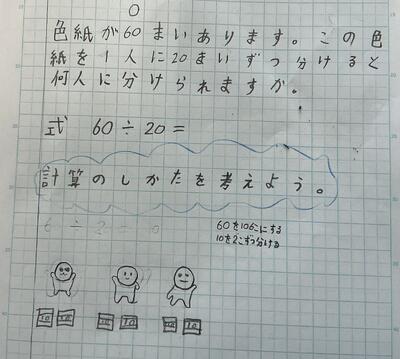 0
色紙が60まいあります。この色
紙を1人に20まいずつ分けると
何人に分けられますか。
式 60÷20=
計算のしかたを考えよう。
6÷2=
60を106こにする
10を2こずつ分ける
10 10 10 10 10 10